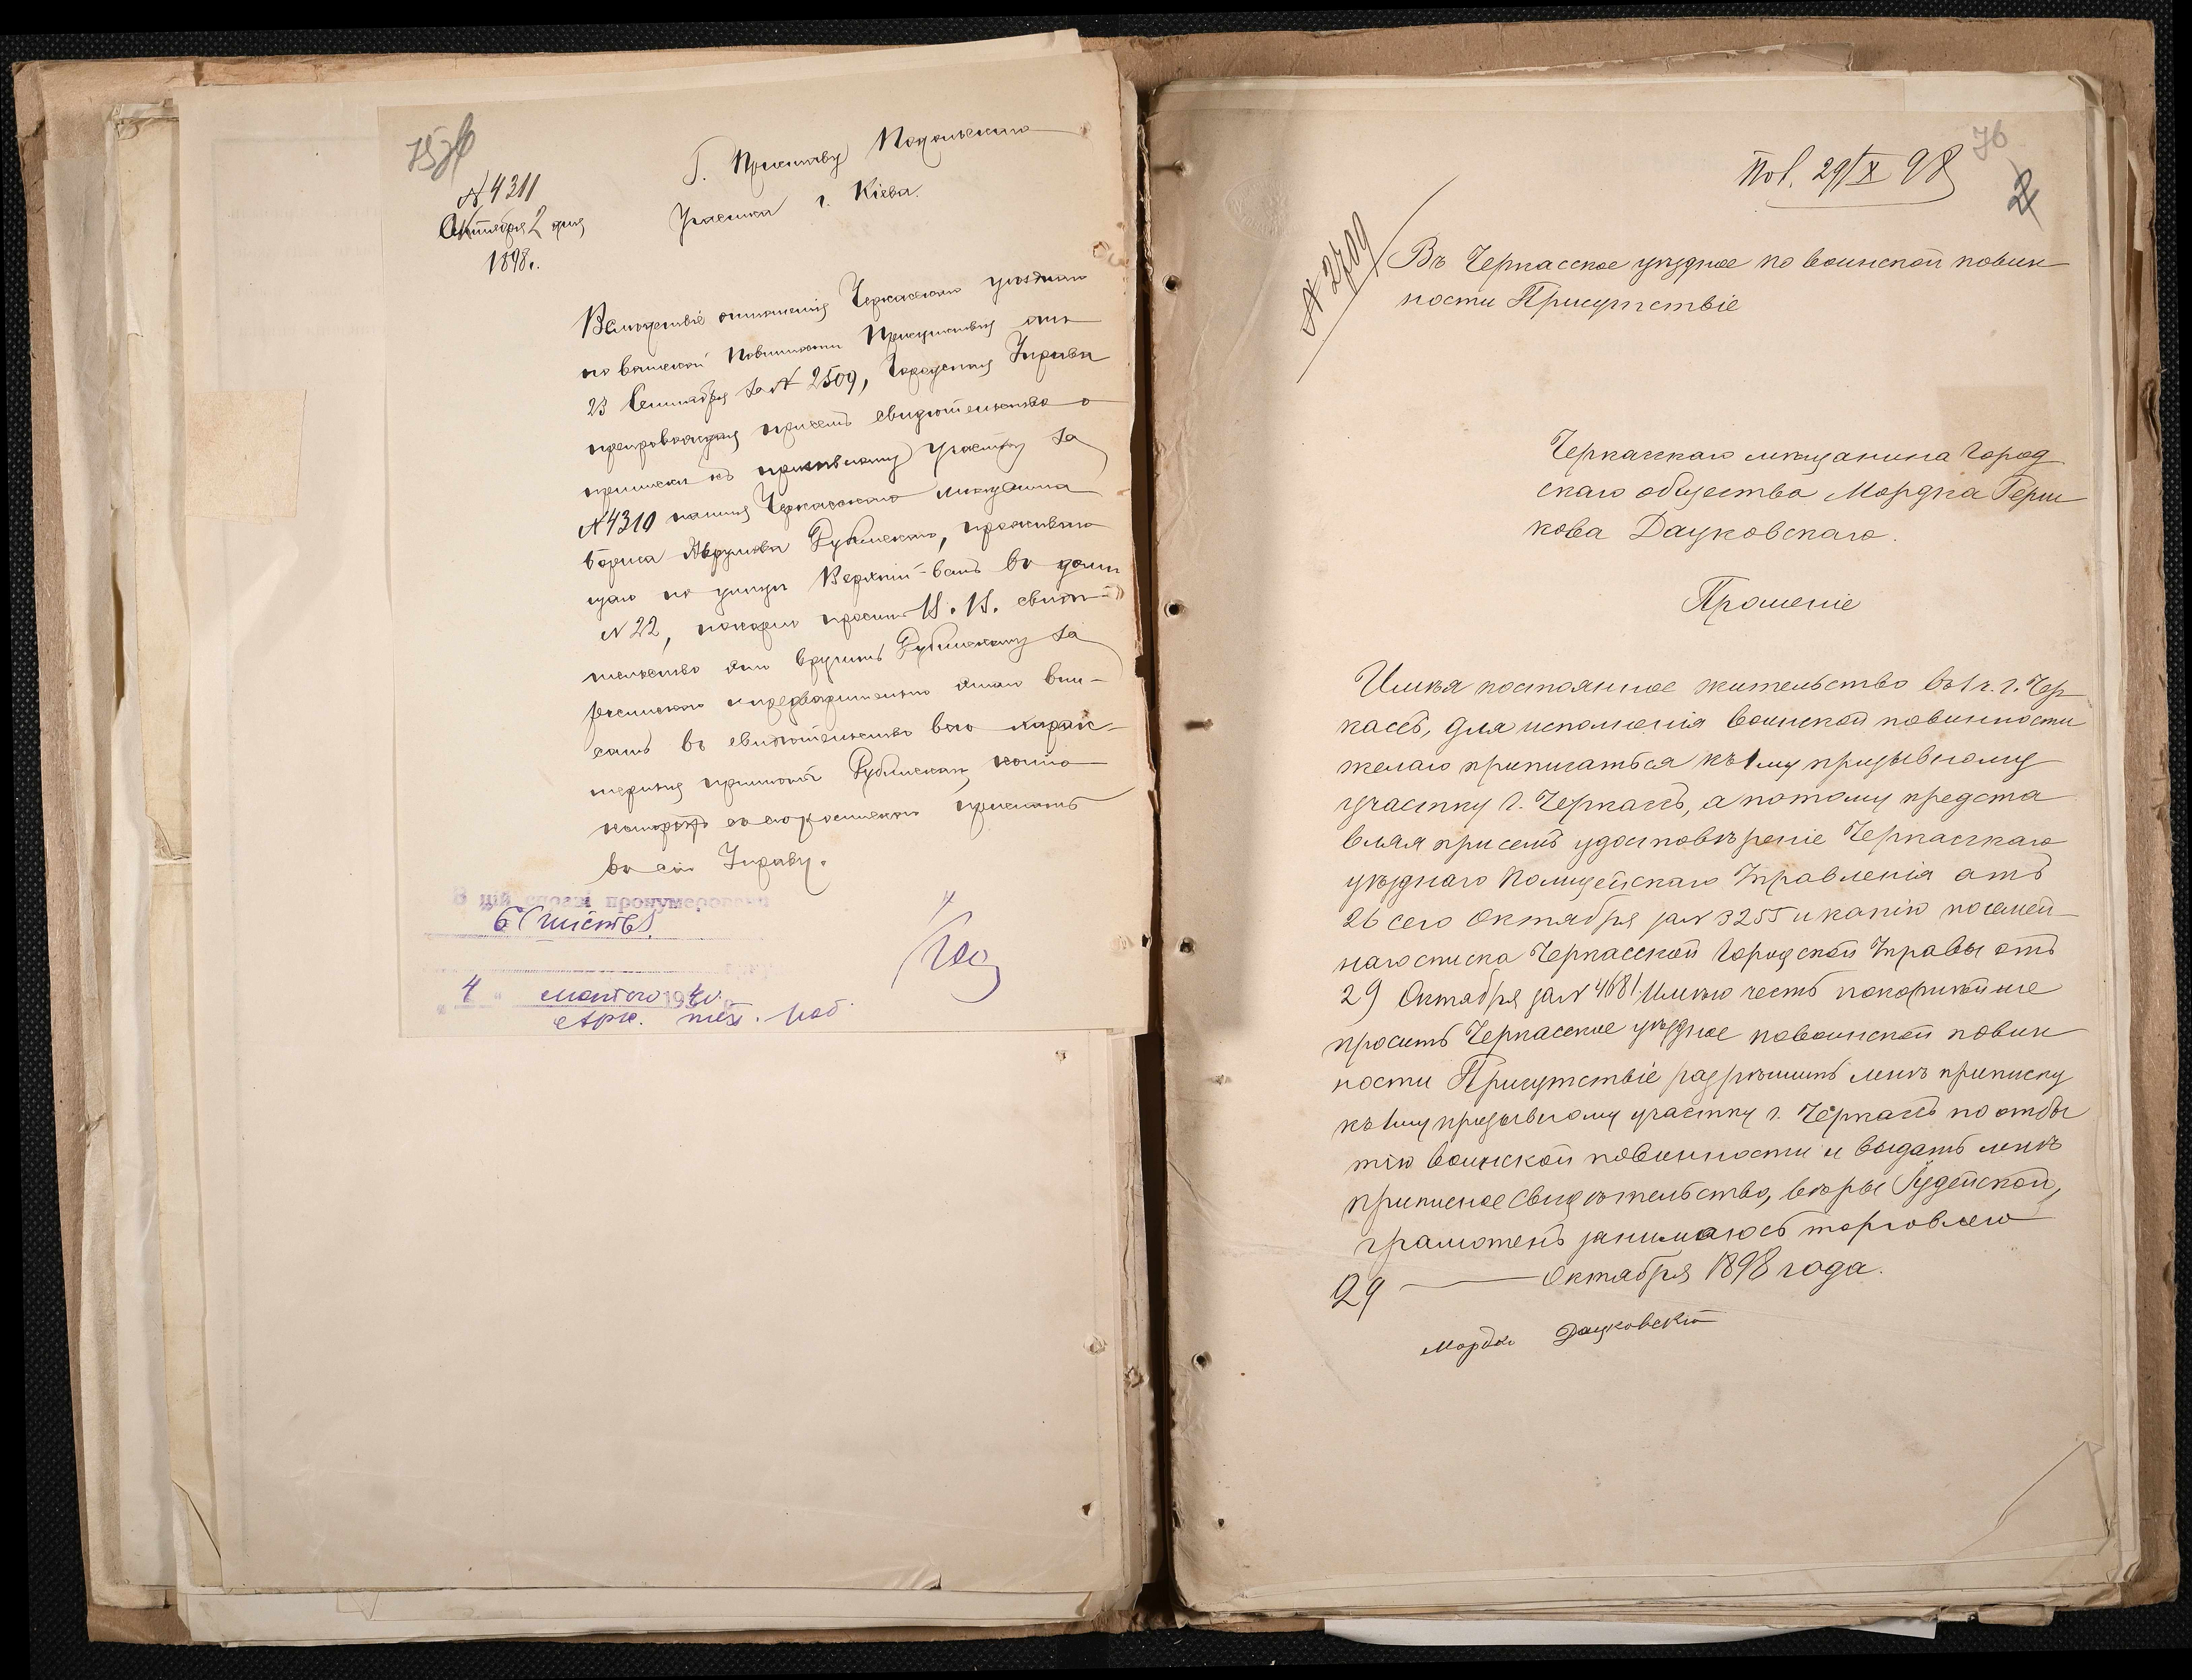 75
№ 4311
Октября 2 дня
1898 г.
Г. Приставу Подольскаго
Участка г. Кіева.
Вслѣдствіе отношенія Черкасскаго уѣзднаго
по воинской Повинности Присутствія отъ
23 Сентября за № 2509, Городская Управа
препровождая при семъ свидѣтельство о
приписки къ призывному участку за
№ 4310 на имя Черкасскаго мѣщанина
Бориса Аврумова Рубинскаго, прожива
щаго по улицѣ Верхній-валъ въ домѣ
№ 22, покорно проситъ В. В. свидѣ
тельство это вручить Рубинскому за
роспискою и предварительно этаго впи-
сать въ свидѣтельство его
примѣты Рубинскаго,
съ его роспискою прислать
въ сію Управу.
В цій справі пронумеровані
6 (шість)
4 " лютого 1940
Арх. тех.
Пол. 29/X 98
76
2
№ 2709
Въ Черкасское уѣздное по воинской повин
ности Присутствіе
Черкасскаго мѣщанина Город
скаго общества Мордка Герш
кова Дацковскаго.
Прошеніе
Имѣя постоянное жительство въ 1 ч. г. Чер
кассъ, для исполненія воинской повинности
желаю приписаться къ 1му призывному
участку г. Черкассъ, а потому предста
вляя при семъ удостовѣреніе Черкасскаго
уѣзднаго Полицейскаго Управленія отъ
26 сего Октября за № 3255 и копію посемей
наго списка Черкасской Городской Управы отъ
29 Октября за № 4681. Имѣю честь покорнѣйше
просить Черкасское уѣздное по воинской повин
ности Присутствіе разрѣшить мнѣ приписку
къ 1му призывному участку г. Черкассъ по отбы
тію воинской повинности и выдать мнѣ
приписное свидѣтельство, вѣры Іудейской,
грамотенъ занимаюсь торговлею
29 Октября 1898 года.
Мордко Дацковскій